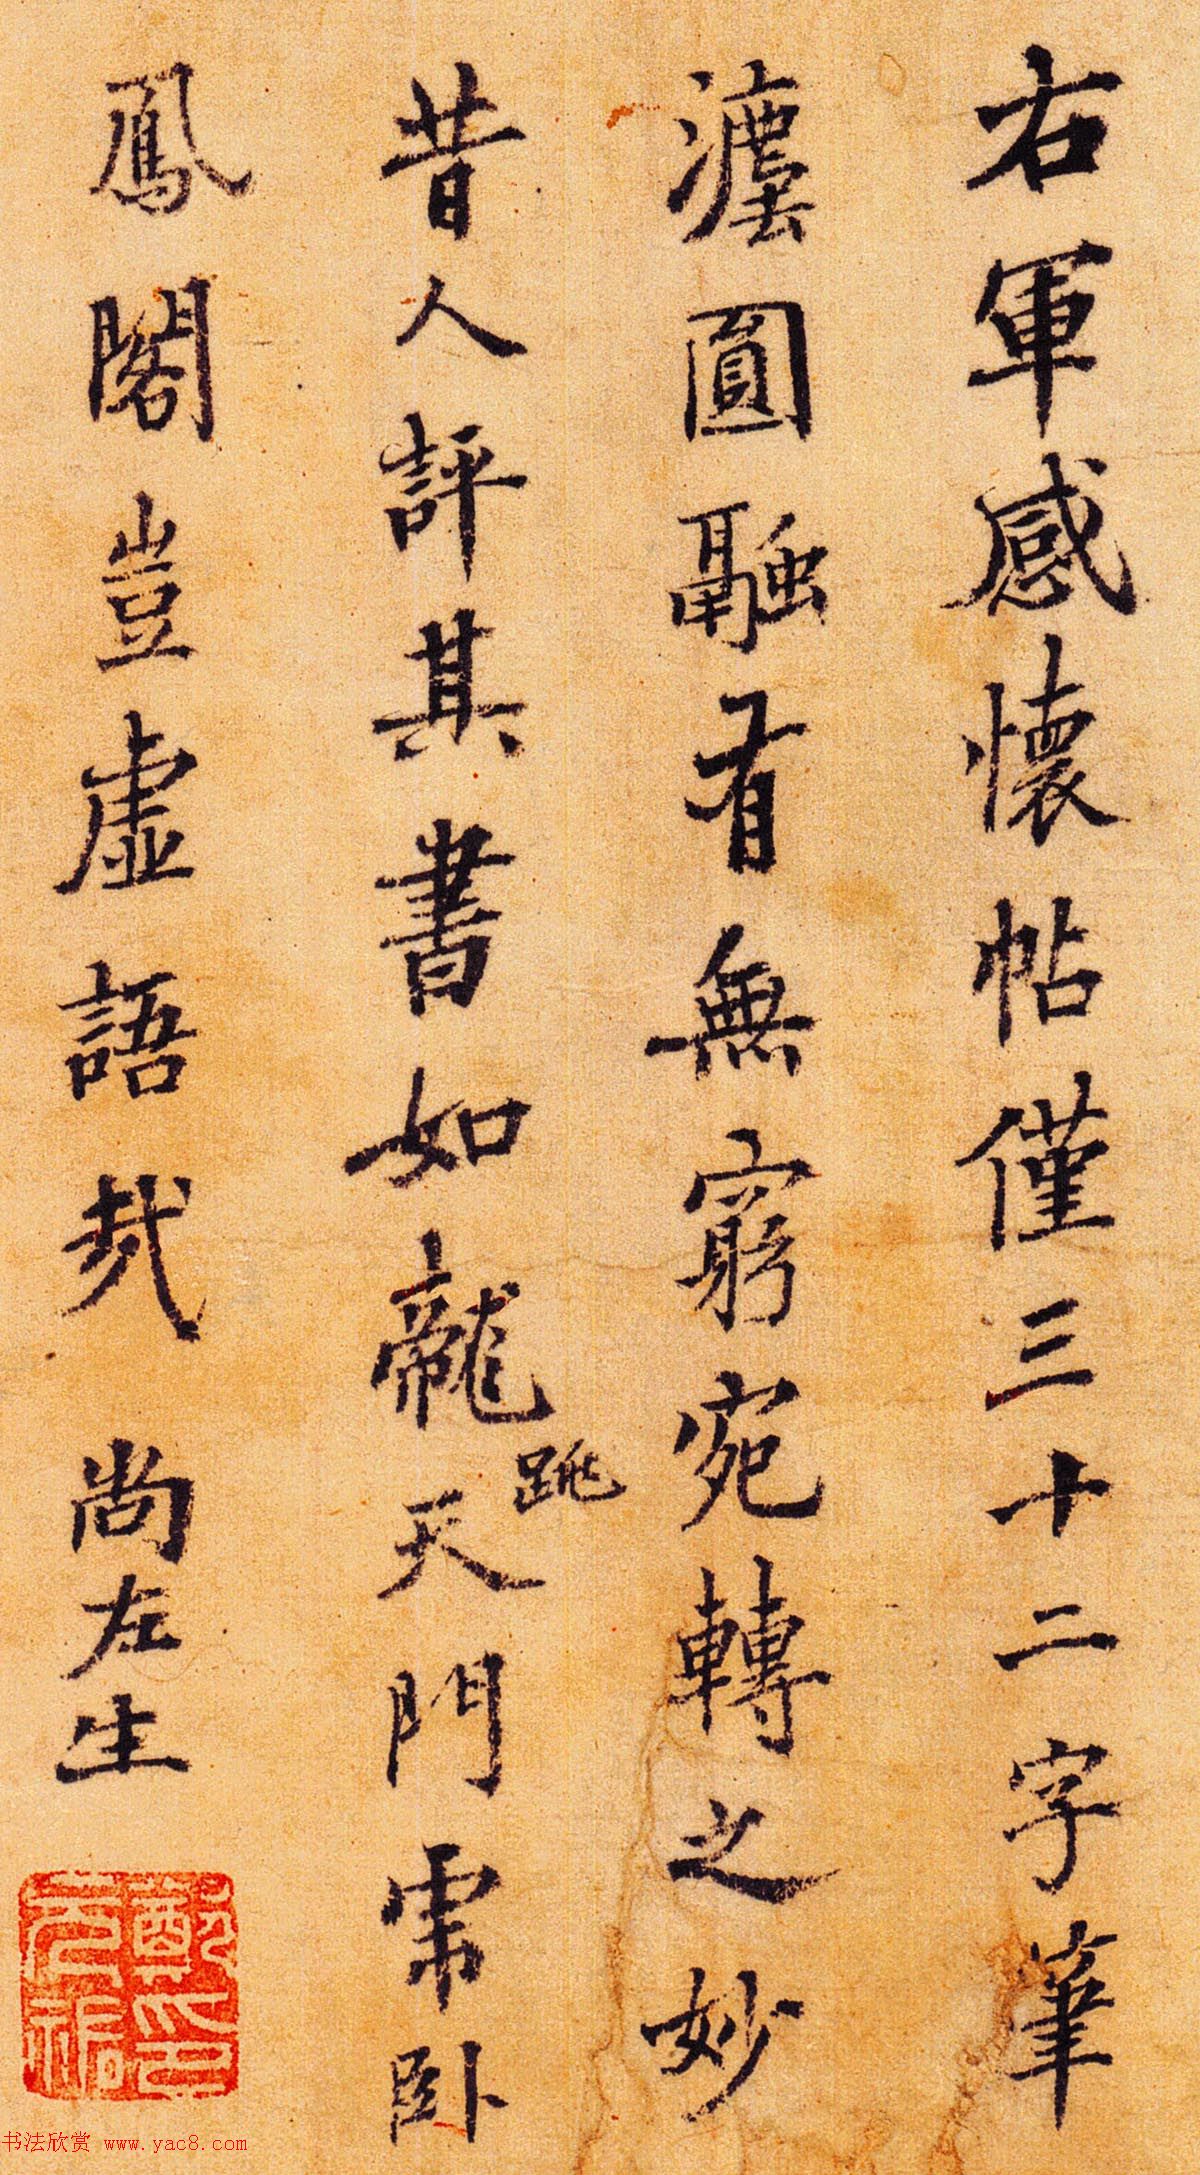 右軍感懷帖僅三十二字筆
灋圓融有無窮宛轉之妙
昔人評其書如龍跳天門虎卧
鳳閣豈虛語哉 尚左生
鄭印元祐
书法欣赏 www.yac8.com